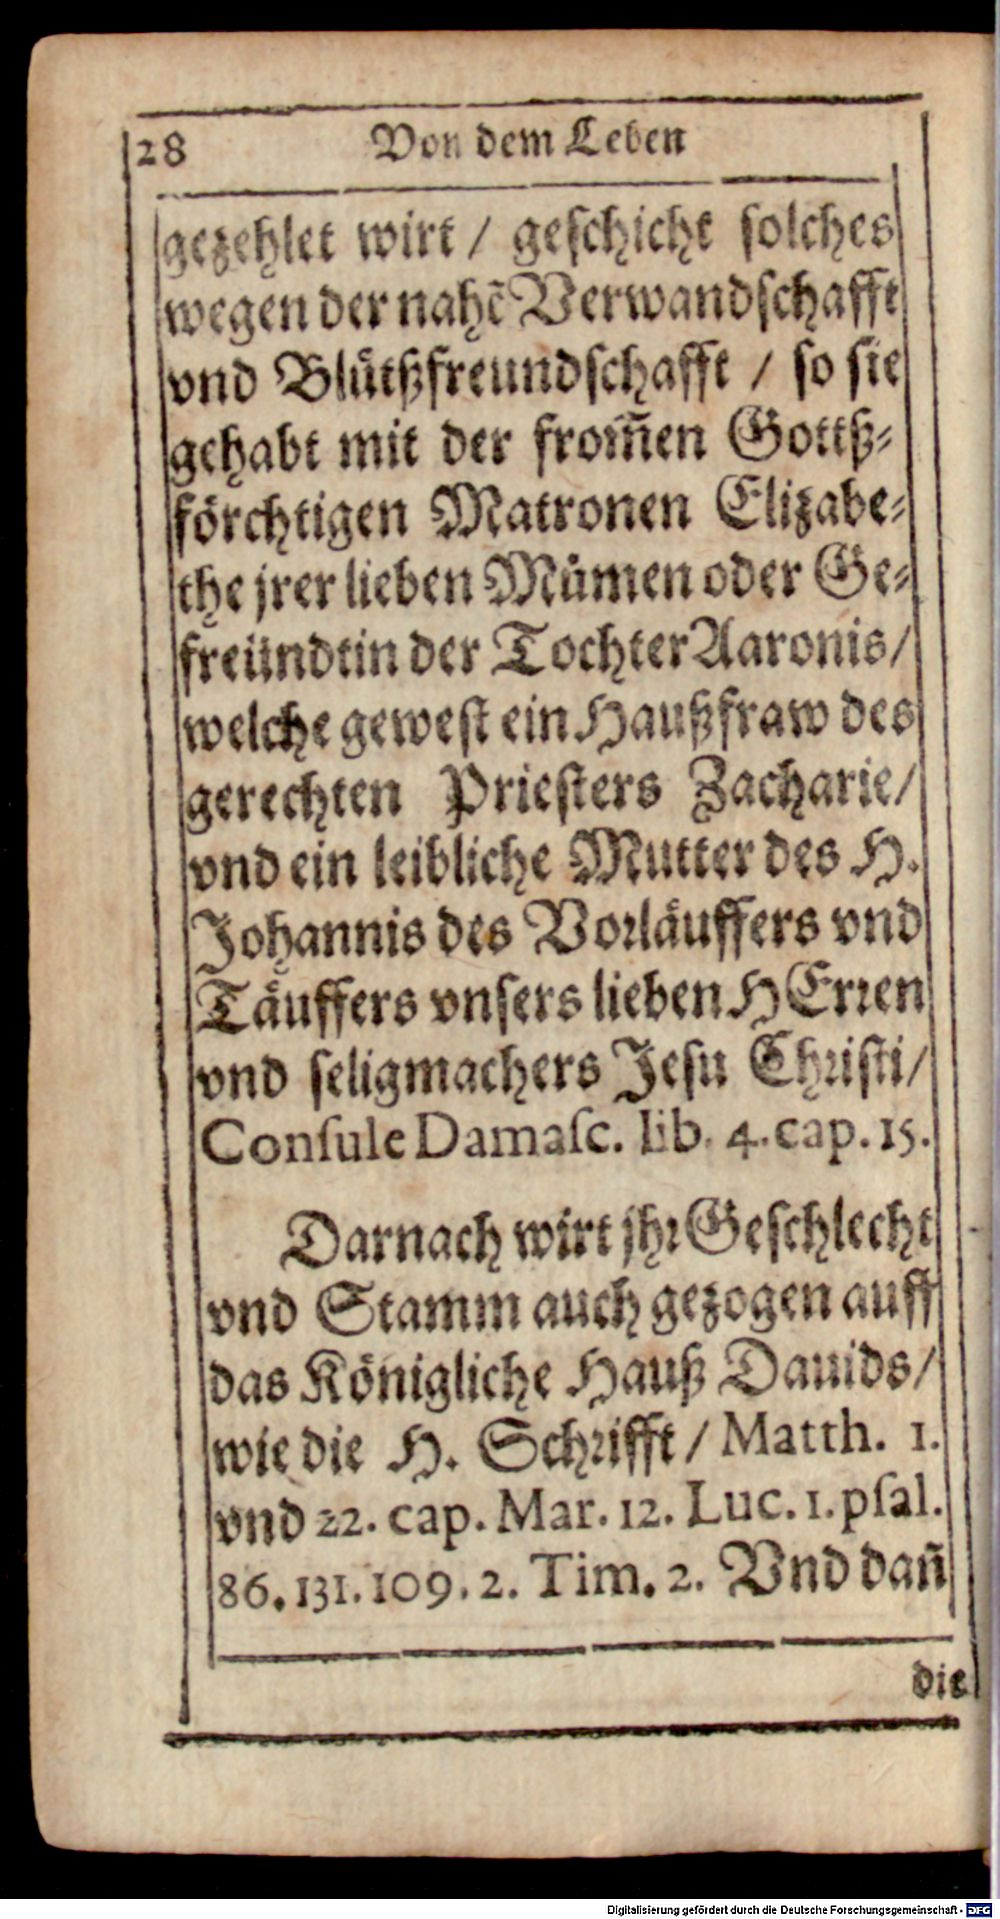 28 Von dem Leben
gezehlet wirt / geschicht solches
wegen der nahẽ Verwandschafft
vnd Blůtßfreundschafft / so sie
gehabt mit der from̃en Gottß-
förchtigen Matronen Elizabe-
the jrer lieben Můmen oder Ge-
freündtin der Tochter Aaronis/
welche gewest ein Haußfraw des
gerechten Priesters Zacharie/
vnd ein leibliche Mutter des H.
Johannis des Vorläuffers vnd
Täuffers vnsers lieben HErren
vnd seligmachers Jesu Christi/
Conſule Damaſc. lib. 4. cap. 15.
Darnach wirt jhr Geschlecht
vnd Stamm auch gezogen auff
das Königliche Hauß Dauids/
wie die H. Schrifft / Matth. 1.
vnd 22. cap. Mar. 12. Luc. 1. pſal.
86. 131. 109. 2. Tim. 2. Vnd dañ
die
Digitalisierung gefördert durch die Deutsche Forschungsgemeinschaft - DFG